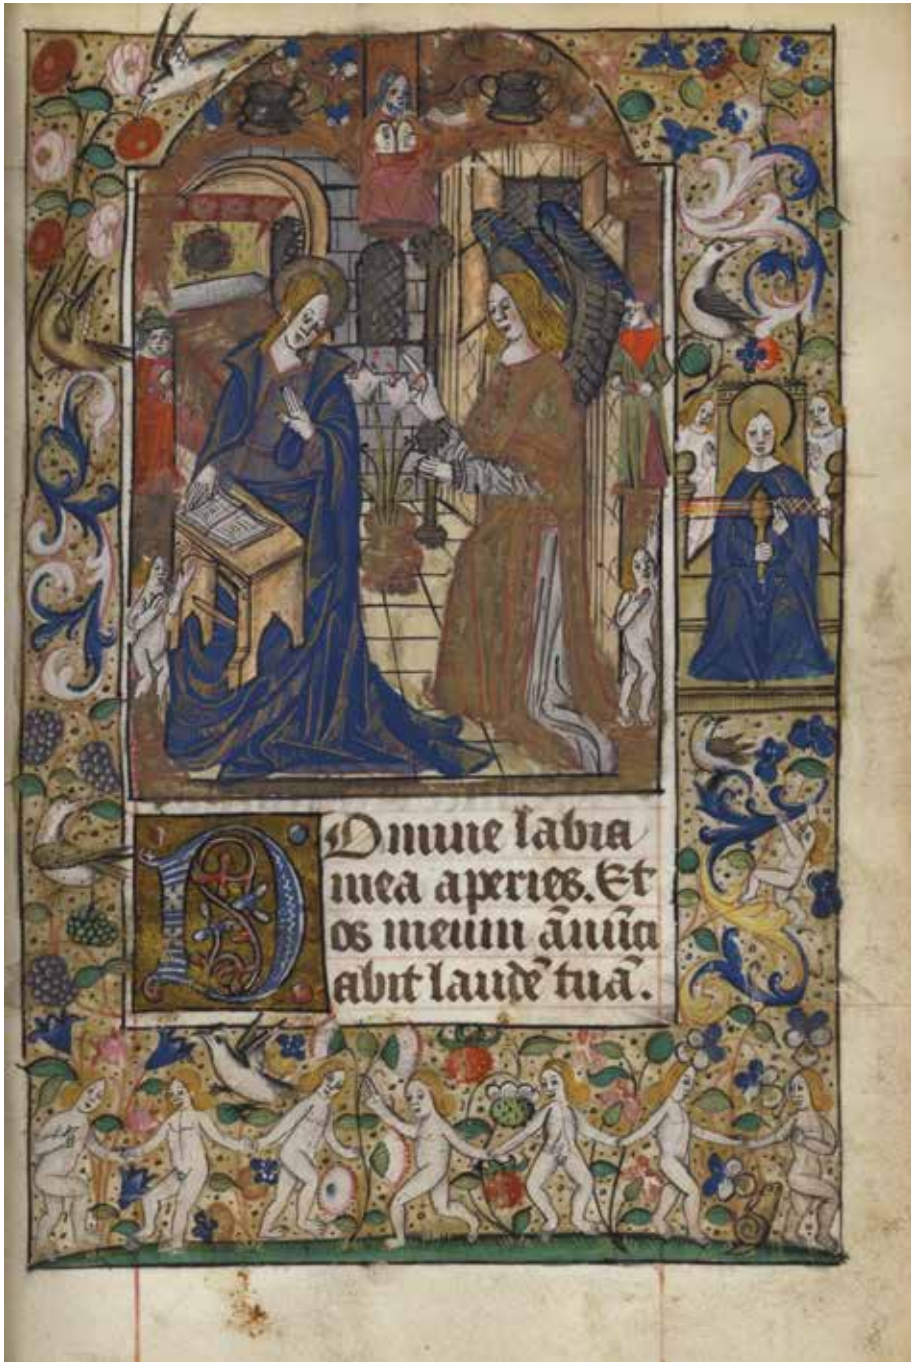 Domine labia
mea aperies. Et
os meum ānūci
abit laudē tuā.